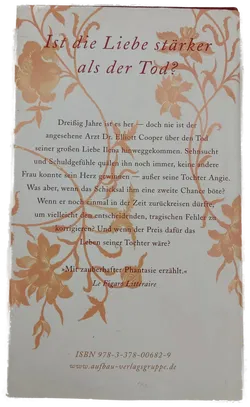 Ist die Liebe stärker
als der Tod?
Dreißig Jahre ist es her — doch nie ist der
angesehene Arzt Dr. Elliott Cooper über den Tod
seiner großen Liebe Ilena hinweggekommen. Sehnsucht
und Schuldgefühle quälen ihn noch immer, keine andere
Frau konnte sein Herz gewinnen — außer seine Tochter Angie.
Was aber, wenn das Schicksal ihm eine zweite Chance böte?
Wenn er noch einmal in der Zeit zurückreisen dürfte,
um vielleicht den entscheidenden, tragischen Fehler zu
korrigieren? Und wenn der Preis dafür das
Leben seiner Tochter wäre?
»Mit zauberhafter Phantasie erzählt.«
Le Figaro Littéraire
ISBN 978-3-378-00682-9
www.aufbau-verlagsgruppe.de